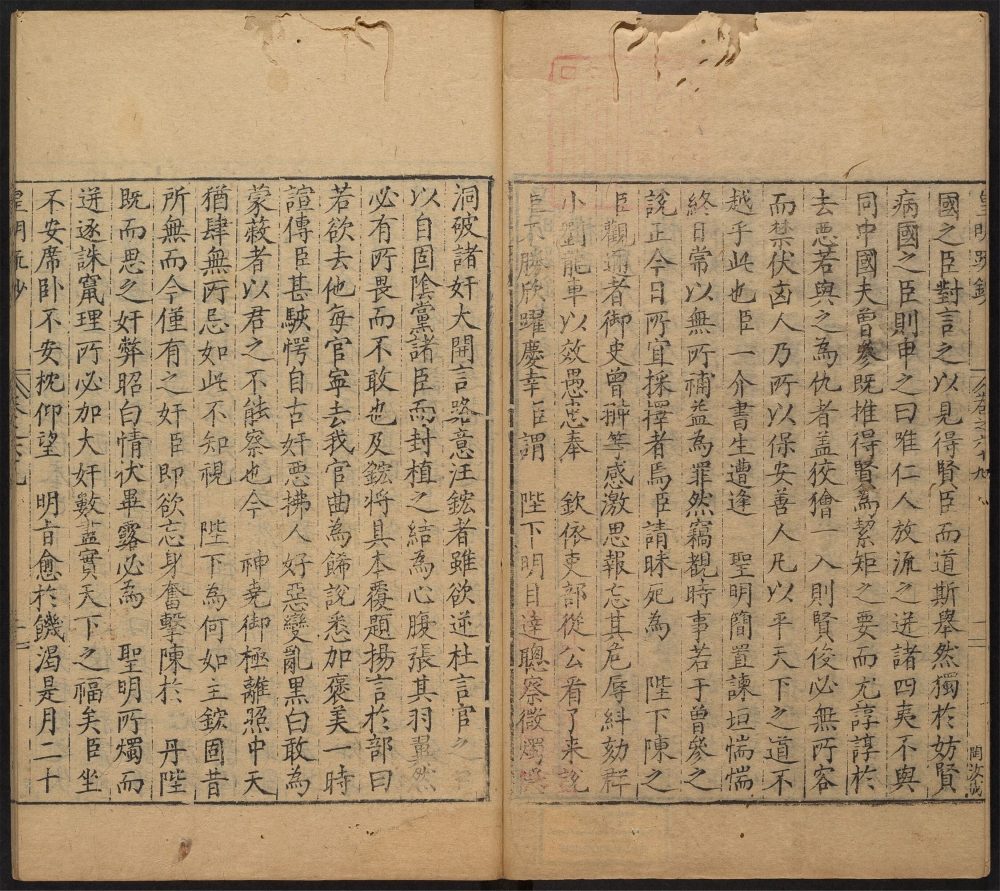 皇明疏鈔
卷之六十九
國之臣對言之以見得賢臣而道斯舉然獨於妨賢
病國之臣則申之曰唯仁人放流之迸諸四夷不與
同中國夫曾參既推得賢為絜矩之要而尤諄諄於
去惡若與之為仇者盖狡獪一入則賢俊必無所容
而禁伏卤人乃所以保安善人凡以平天下之道不
越乎此也臣一介書生遭逢 聖明簡置諫垣惴惴
終日常以無所補益為罪然竊觀時事若于曾參之
說正今日所宜採擇者焉臣請昧死為 陛下陳之
臣觀通者御史曾翀等感激思報忘其危辱糾劾群
小劉龍車以效愚忠奉 欽依吏部從公看了来說
臣不勝欣躍慶幸臣謂 陛下明目達聰察微燭
洞破諸奸大開言路意汪鋐者雖欲逆杜言官之
以自固陰黨諸臣而封植之結為心腹張其羽翼然
必有所畏而不敢也及鋐將具本覆題揚言於部曰
若欲去他每官寧去我官曲為餙說悉加褒美一時
諠傳臣甚駛愕自古奸悪拂人好惡變亂黑白敢為
蒙蔽者以君之不能察也今 神堯御極離照中天
猶肆無所忌如此不知視 陛下為何如主鋐固昔
所無而今僅有之奸臣即欲忘身奮擊陳於 丹陛
既而思之奸弊昭白情伏畢露必為 聖明所燭而
迸逐誅竄理所必加大奸數盡實天下之福矣臣坐
不安席卧不安枕仰望 明旨愈於饑渴是月二十
皇明疏鈔